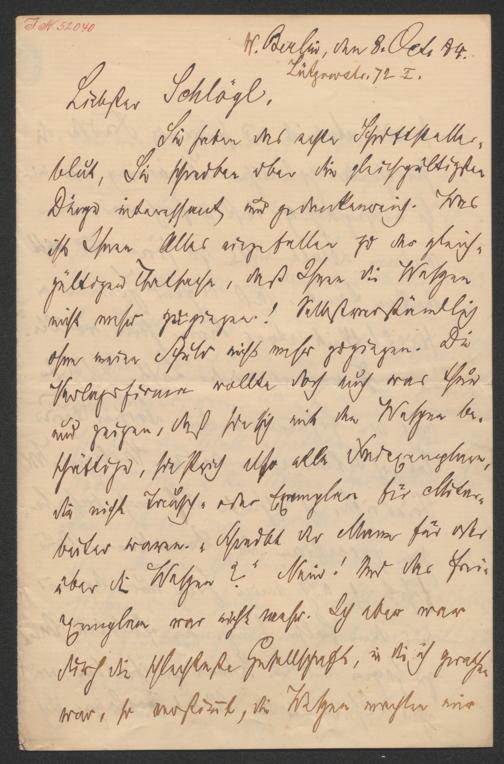 I.N. 52040
W. Berlin, den 8. Oct. 84.
Lützowstr. 72 I.
Liebster Schlögl.
Sie haben das echte Schriftsteller-
blut, Sie schreiben über die gleichgültigsten
Dinge interessant und gedankenreich. Was
ist Ihnen Alles eingefallen zu der gleich-
gültigen Thatsache, daß Ihnen die Wespen
nicht mehr zugiengen! Selbstverständlich
ohne meine Schuld nicht mehr zugiengen. Die
Verlagsfirma wollte doch auch was thun
und zeigen, daß sie sich mit den Wespen be-
schäftige, sie strich also alle Freiexemplare,
die nicht Tausch- oder Exemplare für Mitar-
beiter waren. „Schreibt der Mann für oder
über die Wespen?" Nein! Und das Frei-
exemplar war nicht mehr. Ich aber war
durch die schlechteste Gesellschaft, in die ich gerathen
war, so verstimmt, die Wespen machten mir